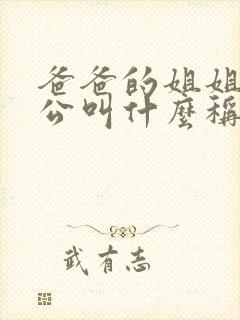 爸爸的姐姐
公叫什麼稱
武有志